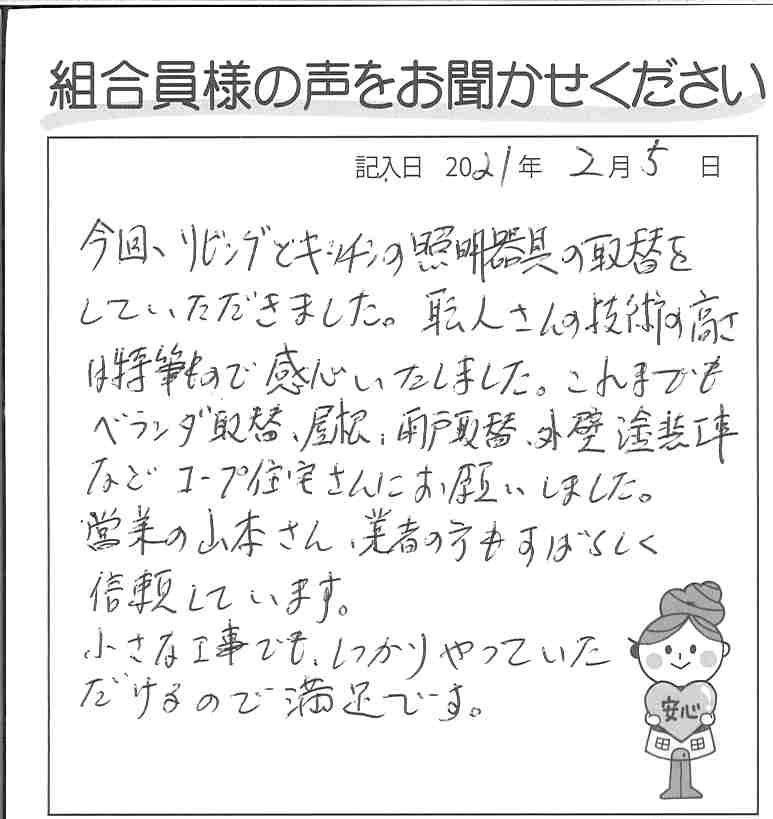 組合員様の声をお聞かせください
記入日 2021年 2月5日
今回、リビングとキッチンの照明器具の取替を
していただきました。職人さんの技術の高さ
は特筆もので感心いたしました。これまでも
ベランダ取替、屋根、雨戸取替、外壁塗装工事
など コープ住宅さんにお願いしました。
営業の山本さん、業者の方もすばらしく
信頼しています。
小さな工事でも、しっかりやっていた
だけるので満足です。
安心